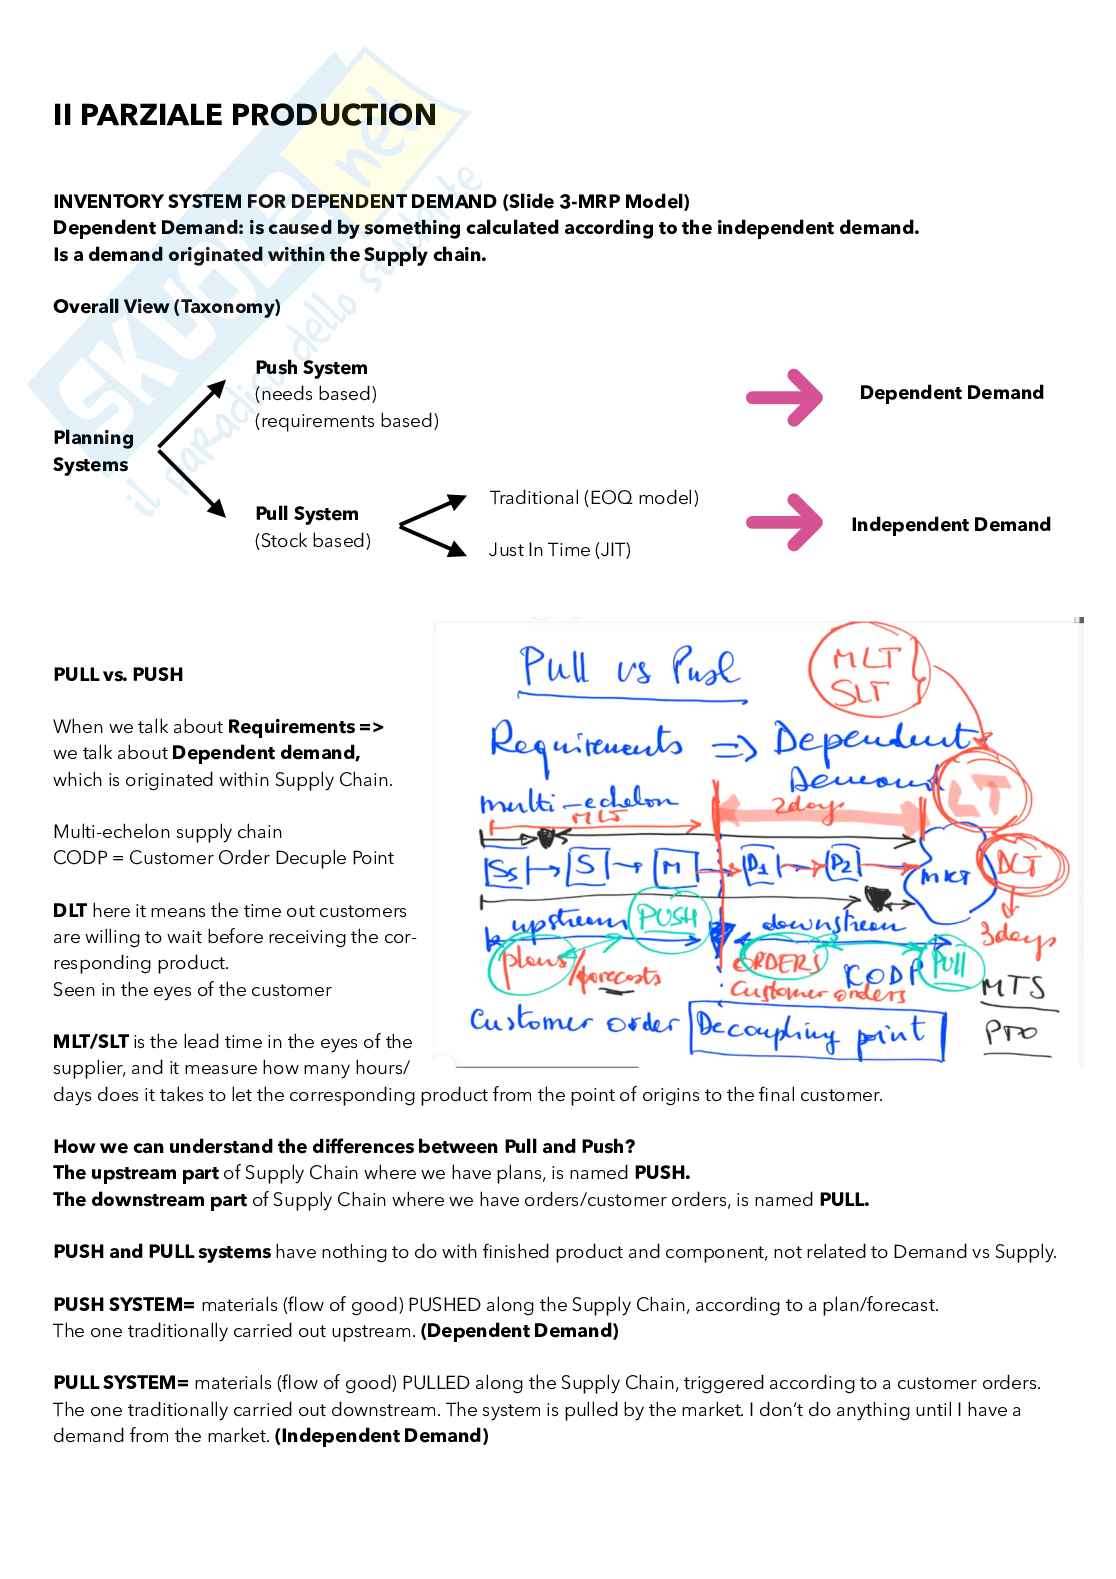 II PARZIALE PRODUCTION
SKUOLA.net
il paradiso dello studente
INVENTORY SYSTEM FOR DEPENDENT DEMAND (Slide 3-MRP Model)
Dependent Demand: is caused by something calculated according to the independent demand.
Is a demand originated within the Supply chain.
Overall View (Taxonomy)
Planning
Systems
Push System
(needs based)
(requirements based)
Dependent Demand
Pull System
(Stock based)
Traditional (EOQ model)
Just In Time (JIT)
Independent Demand
PULL vs. PUSH
When we talk about Requirements =>
we talk about Dependent demand,
which is originated within Supply Chain.
Multi-echelon supply chain
CODP = Customer Order Decuple Point
DLT here it means the time out customers
are willing to wait before receiving the cor-
responding product.
Seen in the eyes of the customer
MLT/SLT is the lead time in the eyes of the
supplier, and it measure how many hours/
days does it takes to let the corresponding product from the point of origins to the final customer.
Pull vs Push
MLT
SLT
Requirements => Dependent
Demand
LT
multi-echelon
MLT
2days
Ss S M D1 D2 MKT
DLT
upstream PUSH downstream
3days
plans/forecasts
ORDERS CODP Pull
Customer orders
MTS
Customer order Decoupling point
PTO
How we can understand the differences between Pull and Push?
The upstream part of Supply Chain where we have plans, is named PUSH.
The downstream part of Supply Chain where we have orders/customer orders, is named PULL.
PUSH and PULL systems have nothing to do with finished product and component, not related to Demand vs Supply.
PUSH SYSTEM= materials (flow of good) PUSHED along the Supply Chain, according to a plan/forecast.
The one traditionally carried out upstream. (Dependent Demand)
PULL SYSTEM= materials (flow of good) PULLED along the Supply Chain, triggered according to a customer orders.
The one traditionally carried out downstream. The system is pulled by the market. I don't do anything until I have a
demand from the market. (Independent Demand)